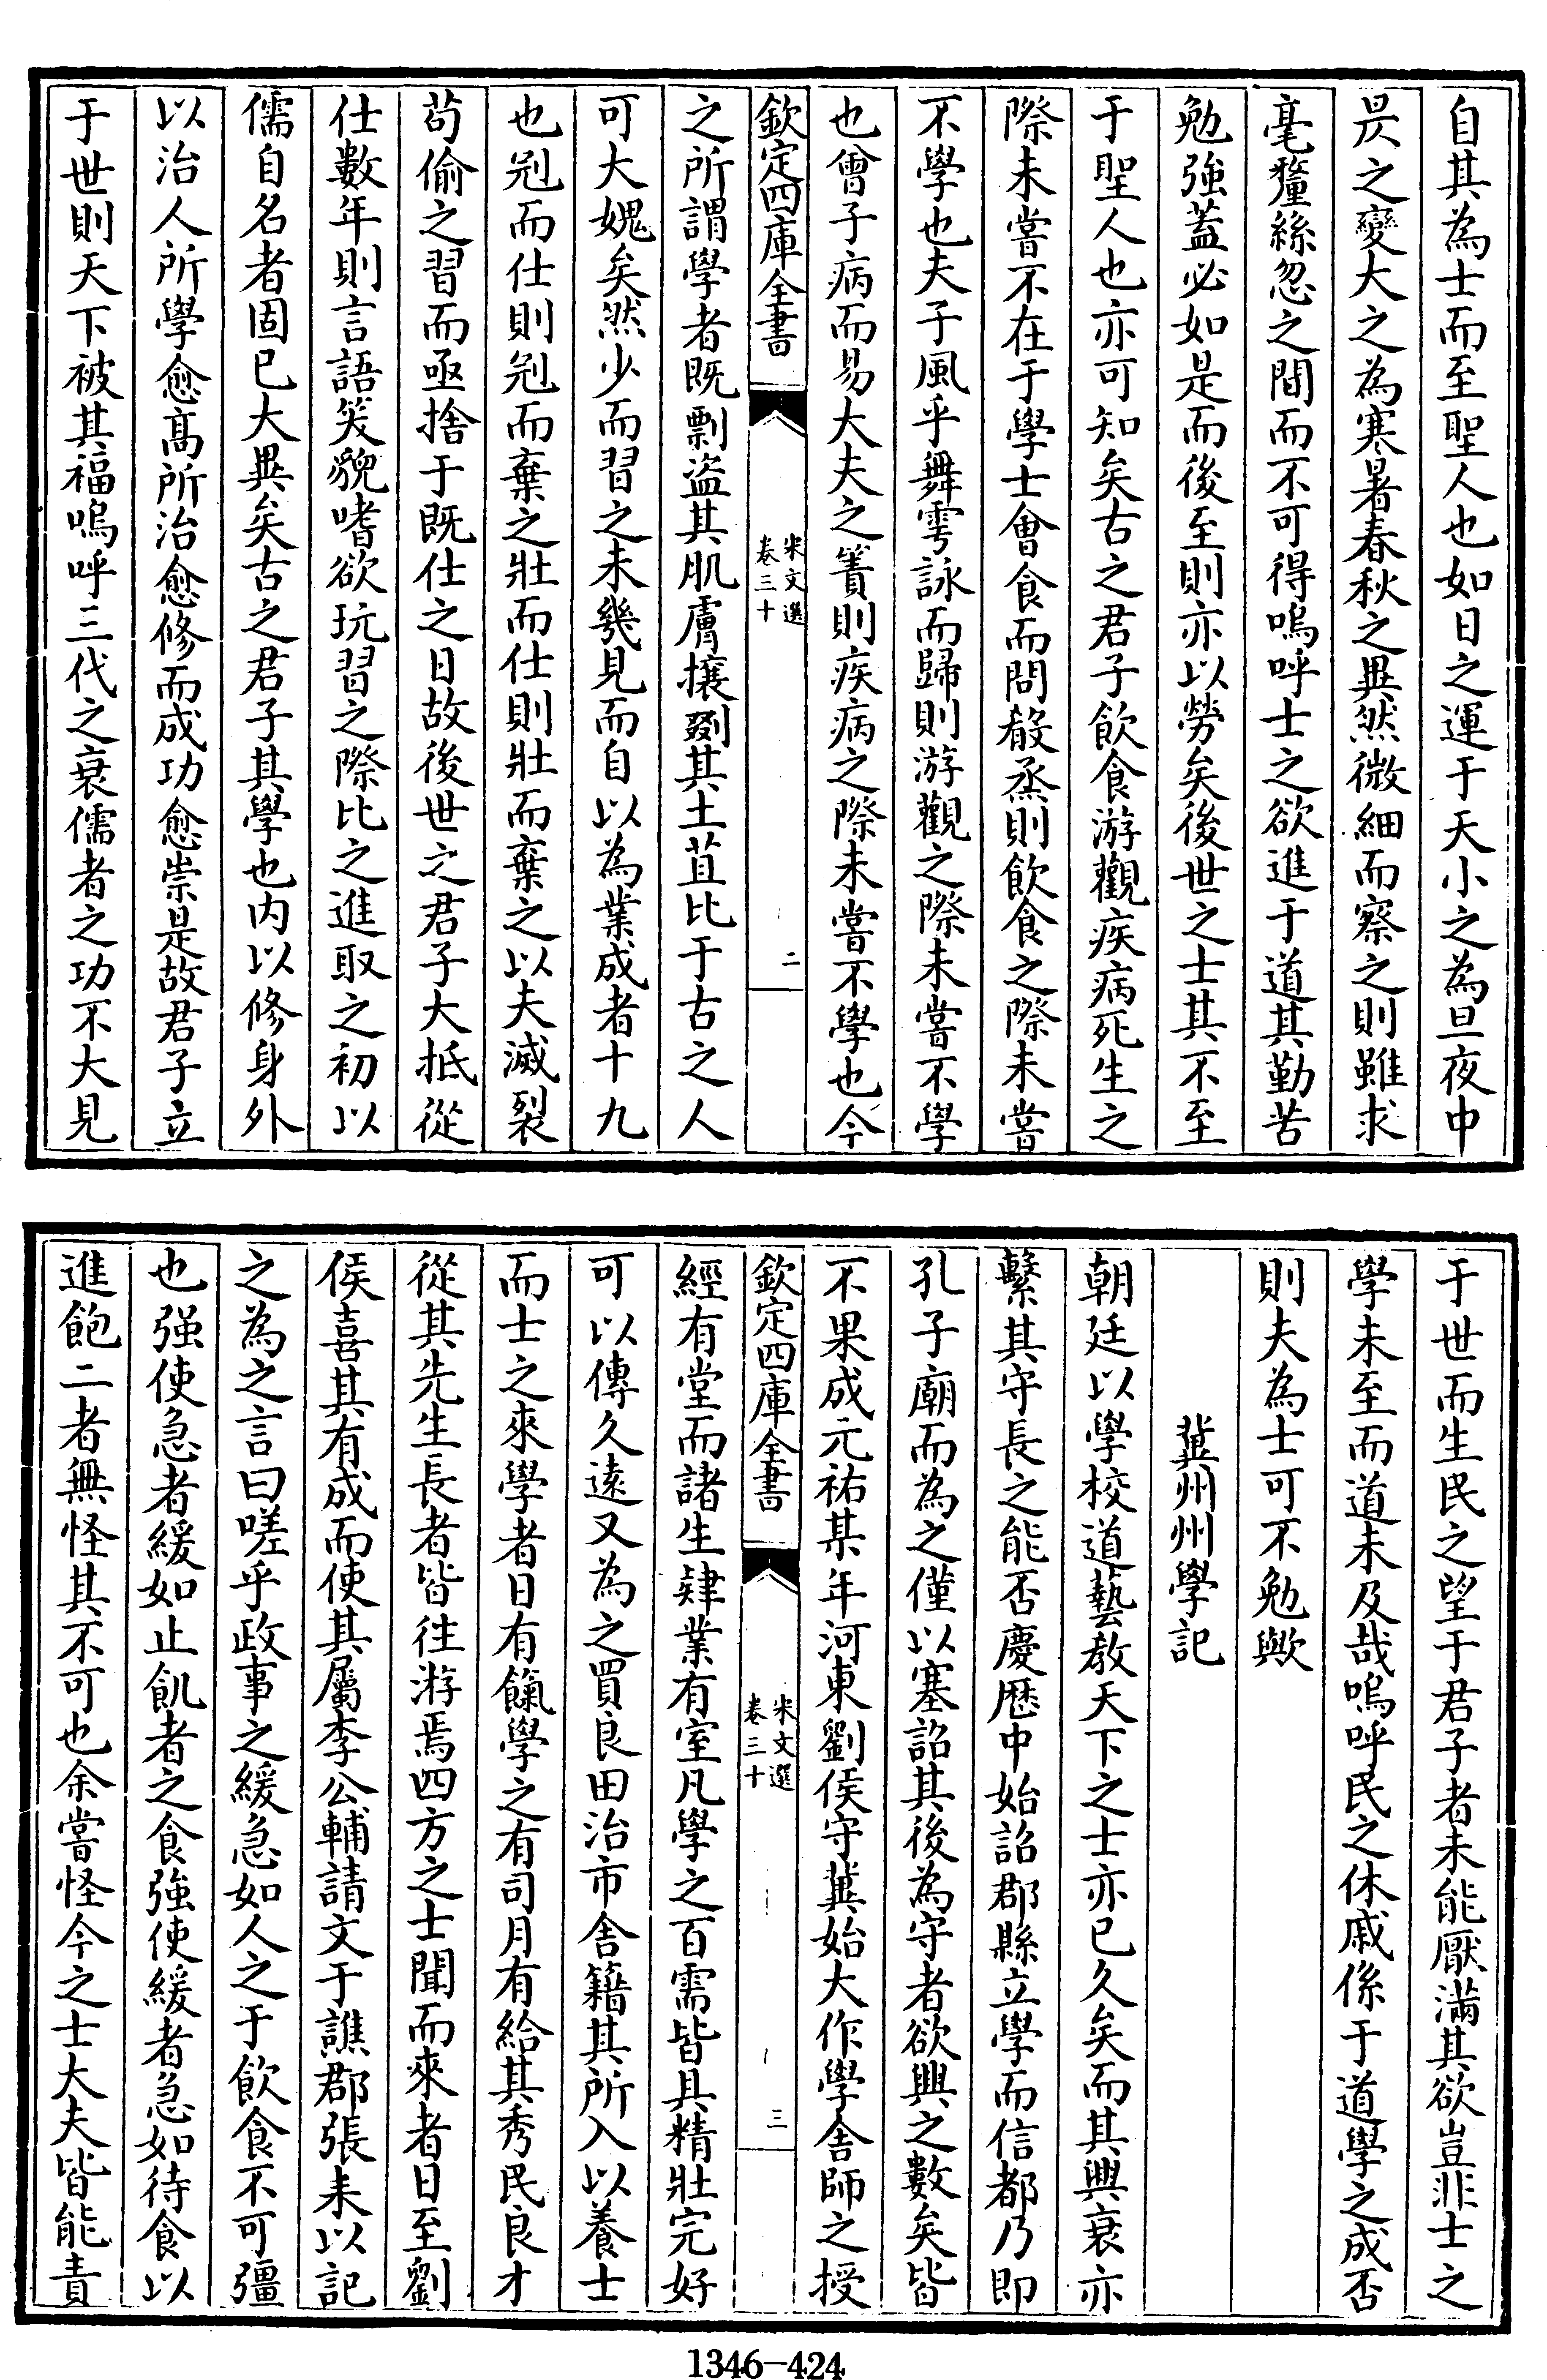 自其為士而至聖人也如日之運于天小之為旦夜中
昃之變大之為寒暑春秋之異然微細而察之則雖求
毫釐絲忽之間而不可得嗚呼士之欲進于道其勤苦
勉強蓋必如是而後至則亦以勞矣後世之士其不至
于聖人也亦可知矣古之君子飲食游觀疾病死生之
際未嘗不在于學士會食而問殽烝則飲食之際未嘗
不學也夫子風乎舞雩詠而歸則游觀之際未嘗不學
也曾子病而易大夫之簀則疾病之際未嘗不學也今
欽定四庫全書
宋文選
卷三十
二
之所謂學者既剽盜其肌膚攘剟其土苴比于古之人
可大媿矣然少而習之未幾見而自以為業成者十九
也剠而仕則剠而棄之壯而仕則壯而棄之以夫滅裂
苟偷之習而亟捨于既仕之日故後世之君子大抵從
仕數年則言語笑貌嗜欲玩習之際比之進取之初以
儒自名者固已大異矣古之君子其學也内以修身外
以治人所學愈高所治愈修而成功愈崇是故君子立
于世則天下被其福嗚呼三代之衰儒者之功不大見
于世而生民之望于君子者未能厭滿其欲豈非士之
學未至而道未及哉嗚呼民之休戚係于道學之成否
則夫為士可不勉歟
冀州州學記
朝廷以學校道藝教天下之士亦已久矣而其興衰亦
繫其守長之能否慶歷中始詔郡縣立學而信都乃即
孔子廟而為之僅以塞詔其後為守者欲興之數矣皆
不果成元祐某年河東劉侯守冀始大作學舎師之授
欽定四庫全書
宋文選
卷三十
三
經有堂而諸生肄業有室凡學之百需皆具精壯完好
可以傳久遠又為之買良田治市舎籍其所入以養士
而士之來學者日有餼學之有司月有給其秀民良才
從其先生長者皆往游焉四方之士聞而來者日至劉
侯喜其有成而使其屬李公輔請文于譙郡張耒以記
之為之言曰嗟乎政事之緩急如人之于飲食不可彊
也强使急者緩如止飢者之食強使緩者急如待食以
進飽二者無怪其不可也余嘗怪今之士大夫皆能責
1346—424